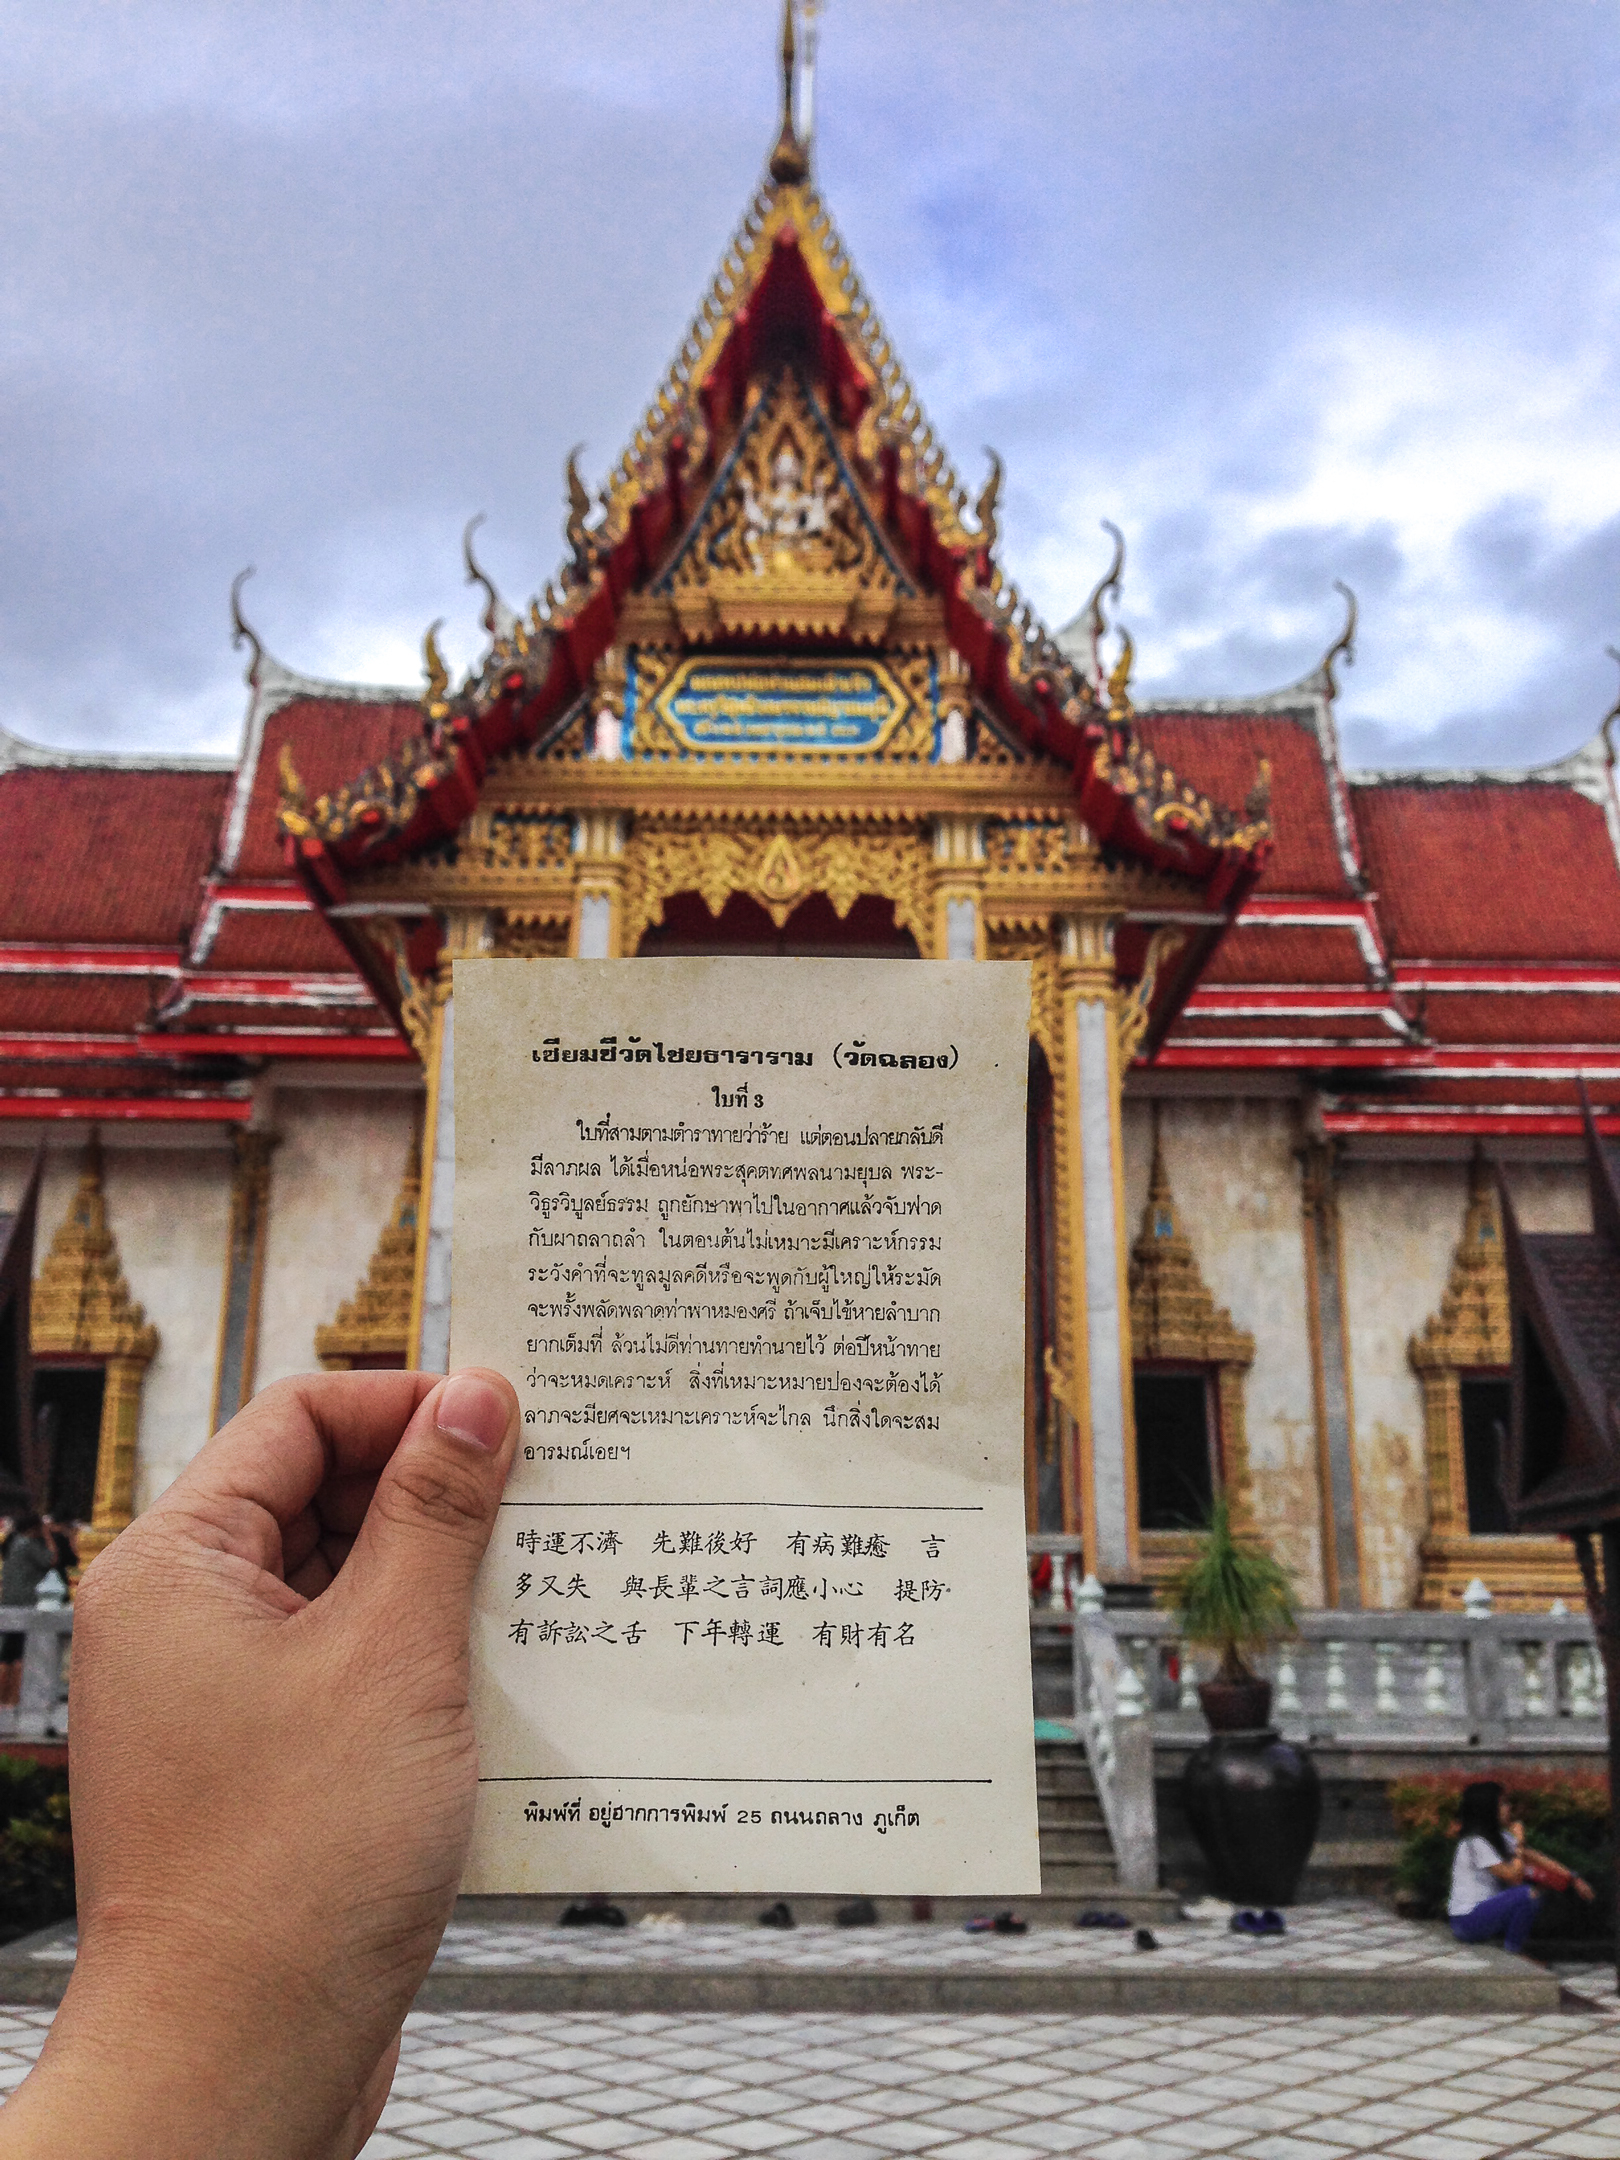 เซียมซีวัดไชยธาราราม (วัดฉลอง)
ใบที่ 3
ใบที่สามตามตำราทายว่าร้าย แต่ตอนปลายกลับดี
มีลาภผล ได้เมื่อหน่อพระสุคตทศพลนามยุบล พระ-
วิธูรวิบูลย์ธรรม ถูกยักษาพาไปในอากาศแล้วจับฟาด
กับผาถลาถลำ ในตอนต้นไม่เหมาะมีเคราะห์กรรม
ระวังคำที่จะทูลมูลคดีหรือจะพูดกับผู้ใหญ่ให้ระมัด
จะพรั้งพลัดพลาดท่าพาหมองศรี ถ้าเจ็บไข้หายลำบาก
ยากเต็มที่ ล้วนไม่ดีท่านทายทำนายไว้ ต่อปีหน้าทาย
ว่าจะหมดเคราะห์ สิ่งที่เหมาะหมายปองจะต้องได้
ลาภจะมียศจะเหมาะเคราะห์จะไกล นึกสิ่งใดจะสม
อารมณ์เอยฯ
時運不濟 先難後好 有病難癒 言
多又失 與長輩之言詞應小心 提防
有訴訟之舌 下年轉運 有財有名
พิมพ์ที่ อยู่ฮากการพิมพ์ 25 ถนนถลาง ภูเก็ต